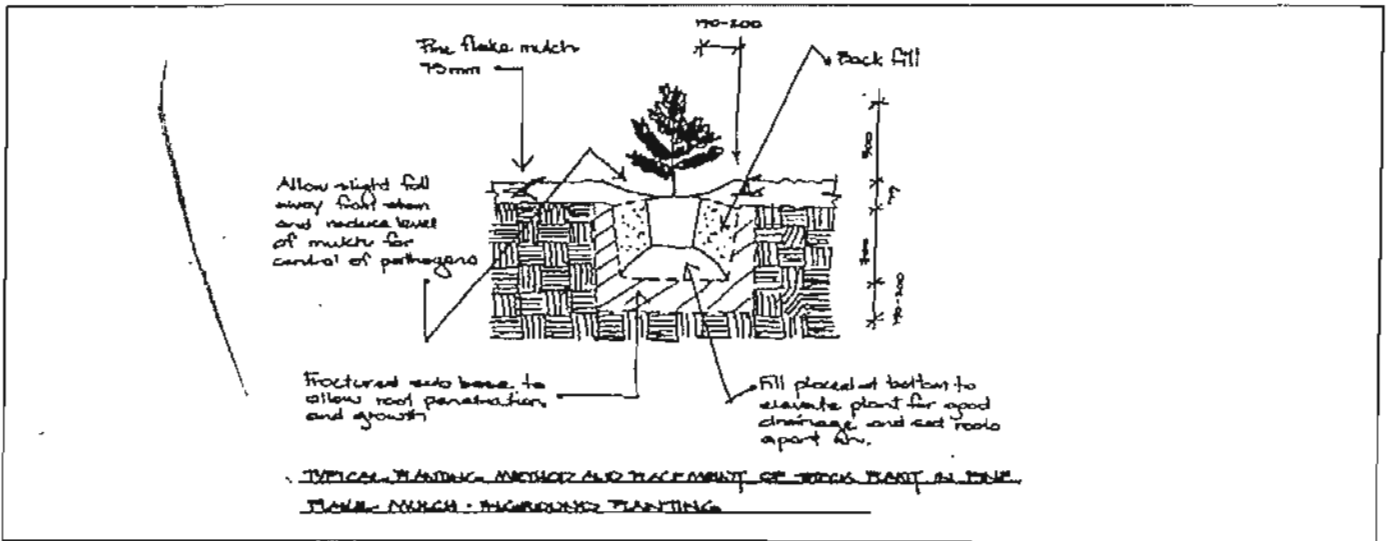 170-200
Pine flake mulch
75mm
Back fill
500
Allow slight fall
away from stem
and reduce level
of mulch for
control of pathogens
150-200
Fractured sub base to
allow root penetration
and growth
Fill placed at bottom to
elevate plant for good
drainage and set roots
apart
TYPICAL PLANTING METHOD AND PLACEMENT OF STOCK PLANT IN PINE
FLAKE MULCH - INGROUND PLANTING